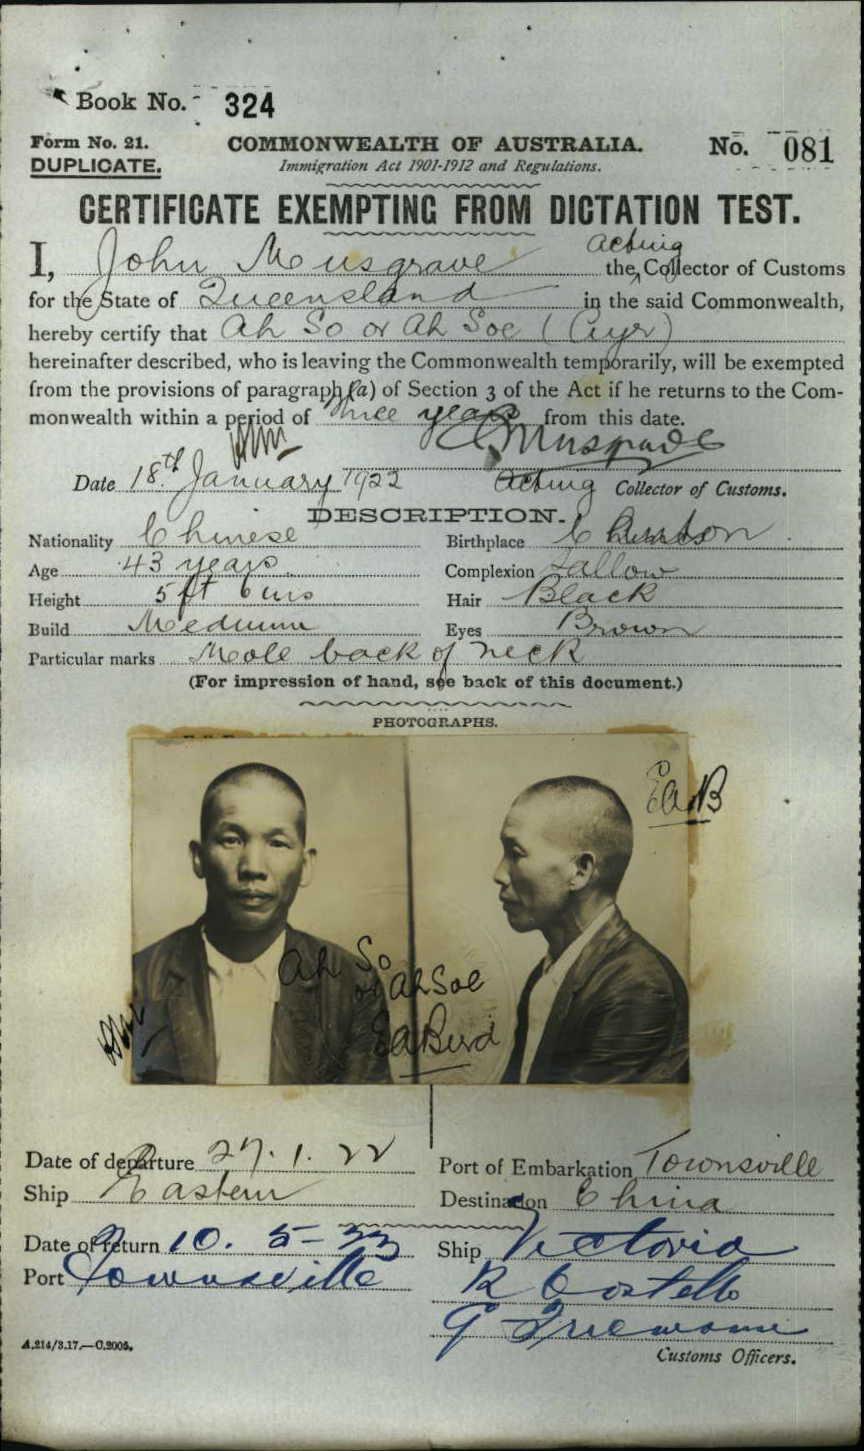 Book No. 324
Form No. 21. COMMONWEALTH OF AUSTRALIA. No. 081
DUPLICATE. Immigration Act 1901-1912 and Regulations.
CERTIFICATE EXEMPTING FROM DICTATION TEST.
I, John Musgrave the Acting Collector of Customs
for the State of Queensland in the said Commonwealth,
hereby certify that Ah So or Ah Soe (Ayr)
hereinafter described, who is leaving the Commonwealth temporarily, will be exempted
from the provisions of paragraph (a) of Section 3 of the Act if he returns to the Com-
monwealth within a period of three years from this date.
Musgrave
Date 18th January 1922 Acting Collector of Customs.
DESCRIPTION.
Nationality Chinese Birthplace Canton
Age 43 years Complexion Sallow
Height 5 ft 6 ins Hair Black
Build Medium Eyes Brown
Particular marks Mole back of neck
(For impression of hand, see back of this document.)
PHOTOGRAPHS.
EAB
Ah So
or Ah Soe
EA Bird
Date of departure 27.1.22 Port of Embarkation Townsville
Ship Eastern Destination China
Date of return 10.5-23 Ship Victoria
Port Townsville R Costello
G
Customs Officers.
A.214/3.17.—C.2005.